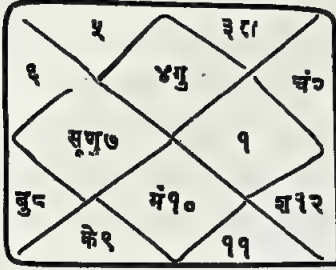 ५ ३रा
६ ४गु चं२
सूशु७ १
बु८ मं१० श१२
के९ ११